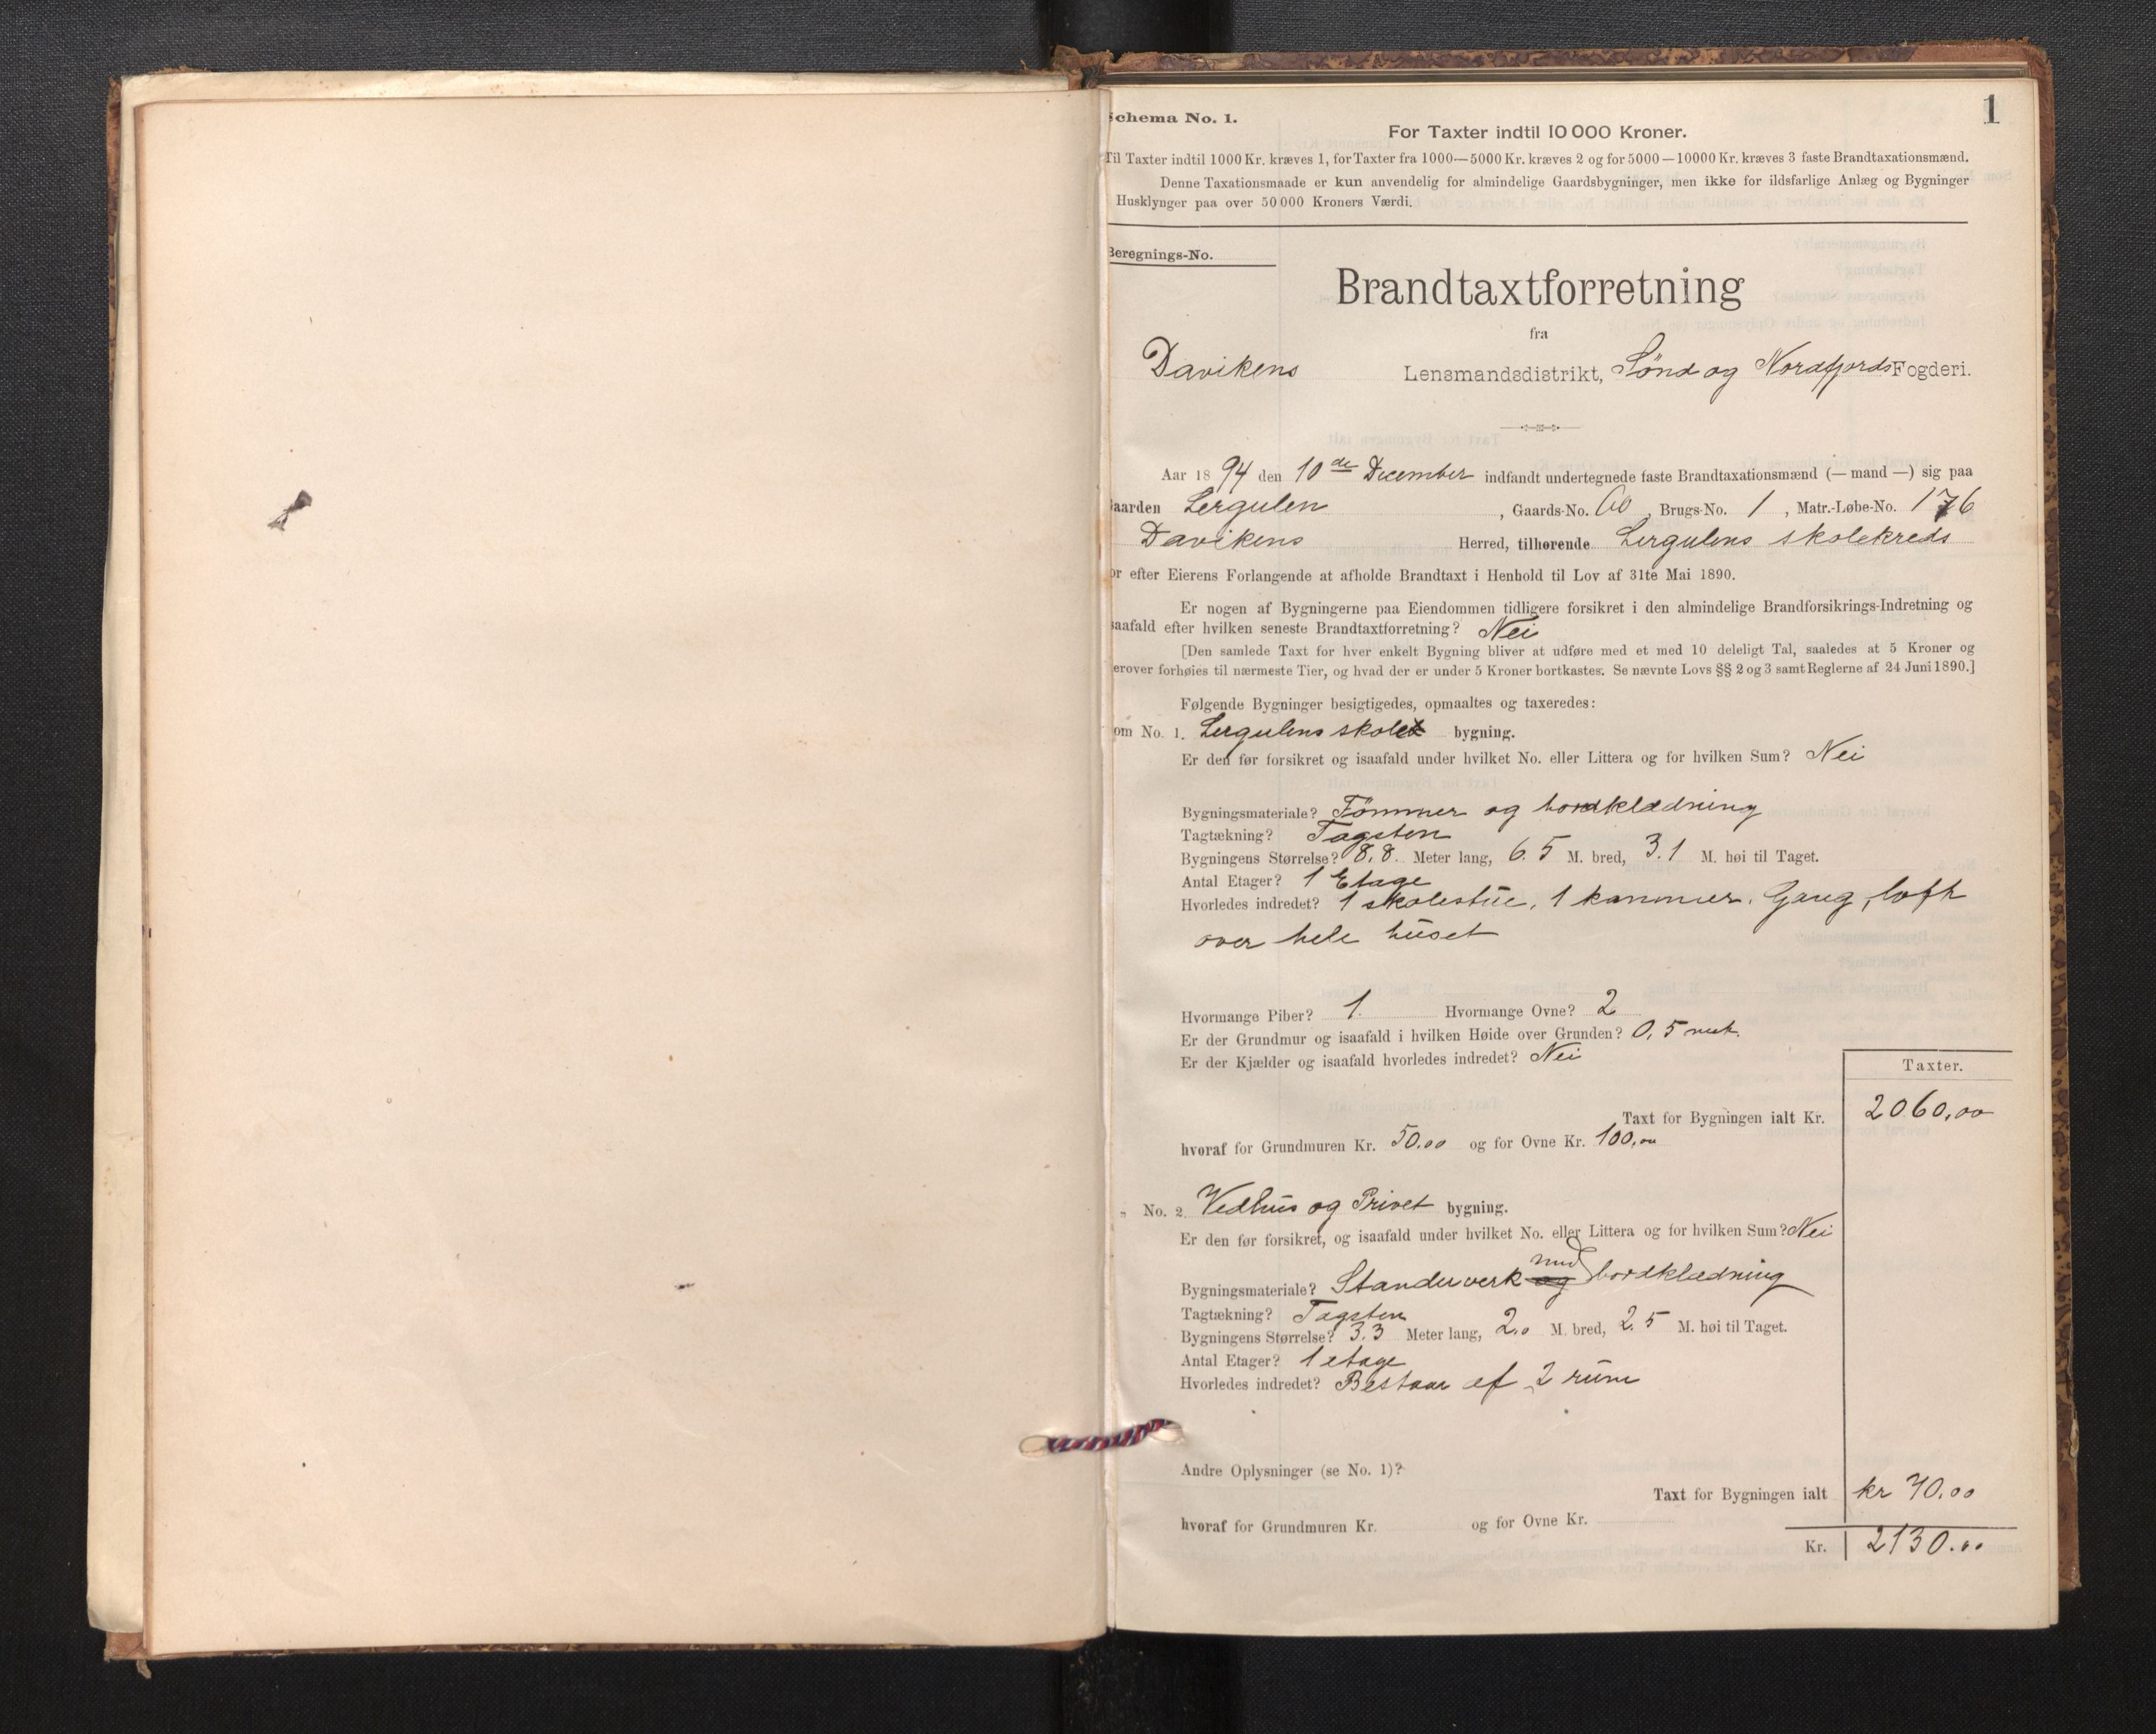 1
Schema No. 1.
For Taxter indtil 10 000 Kroner.
Til Taxter indtil 1000 Kr. kræves 1, for Taxter fra 1000—5000 Kr. kræves 2 og for 5000—10000 Kr. kræves 3 faste Brandtaxationsmænd.
Denne Taxationsmaade er kun anvendelig for almindelige Gaardsbygninger, men ikke for ildsfarlige Anlæg og Bygninger
Husklynger paa over 50 000 Kroners Værdi.
Beregnings-No.
Brandtaxtforretning
fra
Davikens Lensmandsdistrikt, Sønd og Nordfjords Fogderi.
Aar 1894 den 10de December indfandt undertegnede faste Brandtaxationsmænd (— mand —) sig paa
aarden Lergulen, Gaards-No. 60, Brugs-No. 1, Matr.-Løbe-No. 176
Davikens Herred, tilhørende Lergulens skolekreds
or efter Eierens Forlangende at afholde Brandtaxt i Henhold til Lov af 31te Mai 1890.
Er nogen af Bygningerne paa Eiendommen tidligere forsikret i den almindelige Brandforsikrings-Indretning og
saafald efter hvilken seneste Brandtaxtforretning? Nei
[Den samlede Taxt for hver enkelt Bygning bliver at udføre med et med 10 deleligt Tal, saaledes at 5 Kroner og
erover forhøies til nærmeste Tier, og hvad der er under 5 Kroner bortkastes. Se nævnte Lovs §§ 2 og 3 samt Reglerne af 24 Juni 1890.]
Følgende Bygninger besigtigedes, opmaaltes og taxeredes:
om No. 1. Lergulens skole bygning.
Er den før forsikret og isaafald under hvilket No. eller Littera og for hvilken Sum? Nei
Bygningsmateriale? Tømmer og bordklædning
Tagtækning? Tagsten
Bygningens Størrelse? 8,8. Meter lang, 6.5 M. bred, 3.1 M. høi til Taget.
Antal Etager? 1 Etage
Hvorledes indredet? 1 skolestue, 1 kammer. Gang, loft
over hele huset
Hvormange Piber? 1. Hvormange Ovne? 2
Er der Grundmur og isaafald i hvilken Høide over Grunden? 0,5 met.
Er der Kjælder og isaafald hvorledes indredet? Nei
Taxter.
Taxt for Bygningen ialt Kr. 2060,00
hvoraf for Grundmuren Kr. 50.00 og for Ovne Kr. 100,00
„ No. 2. Vedhus og Privet bygning.
Er den før forsikret, og isaafald under hvilket No. eller Littera og for hvilken Sum? Nei
Bygningsmateriale? Standerverk og med bordklædning
Tagtækning? Tagsten
Bygningens Størrelse? 3.3 Meter lang, 2.0 M. bred, 2.5 M. høi til Taget.
Antal Etager? 1 etage
Hvorledes indredet? Bestaar af 2 rum
Andre Oplysninger (se No. 1)?
Taxt for Bygningen ialt kr 70.00
hvoraf for Grundmuren Kr. og for Ovne Kr.
Kr. 2130.00